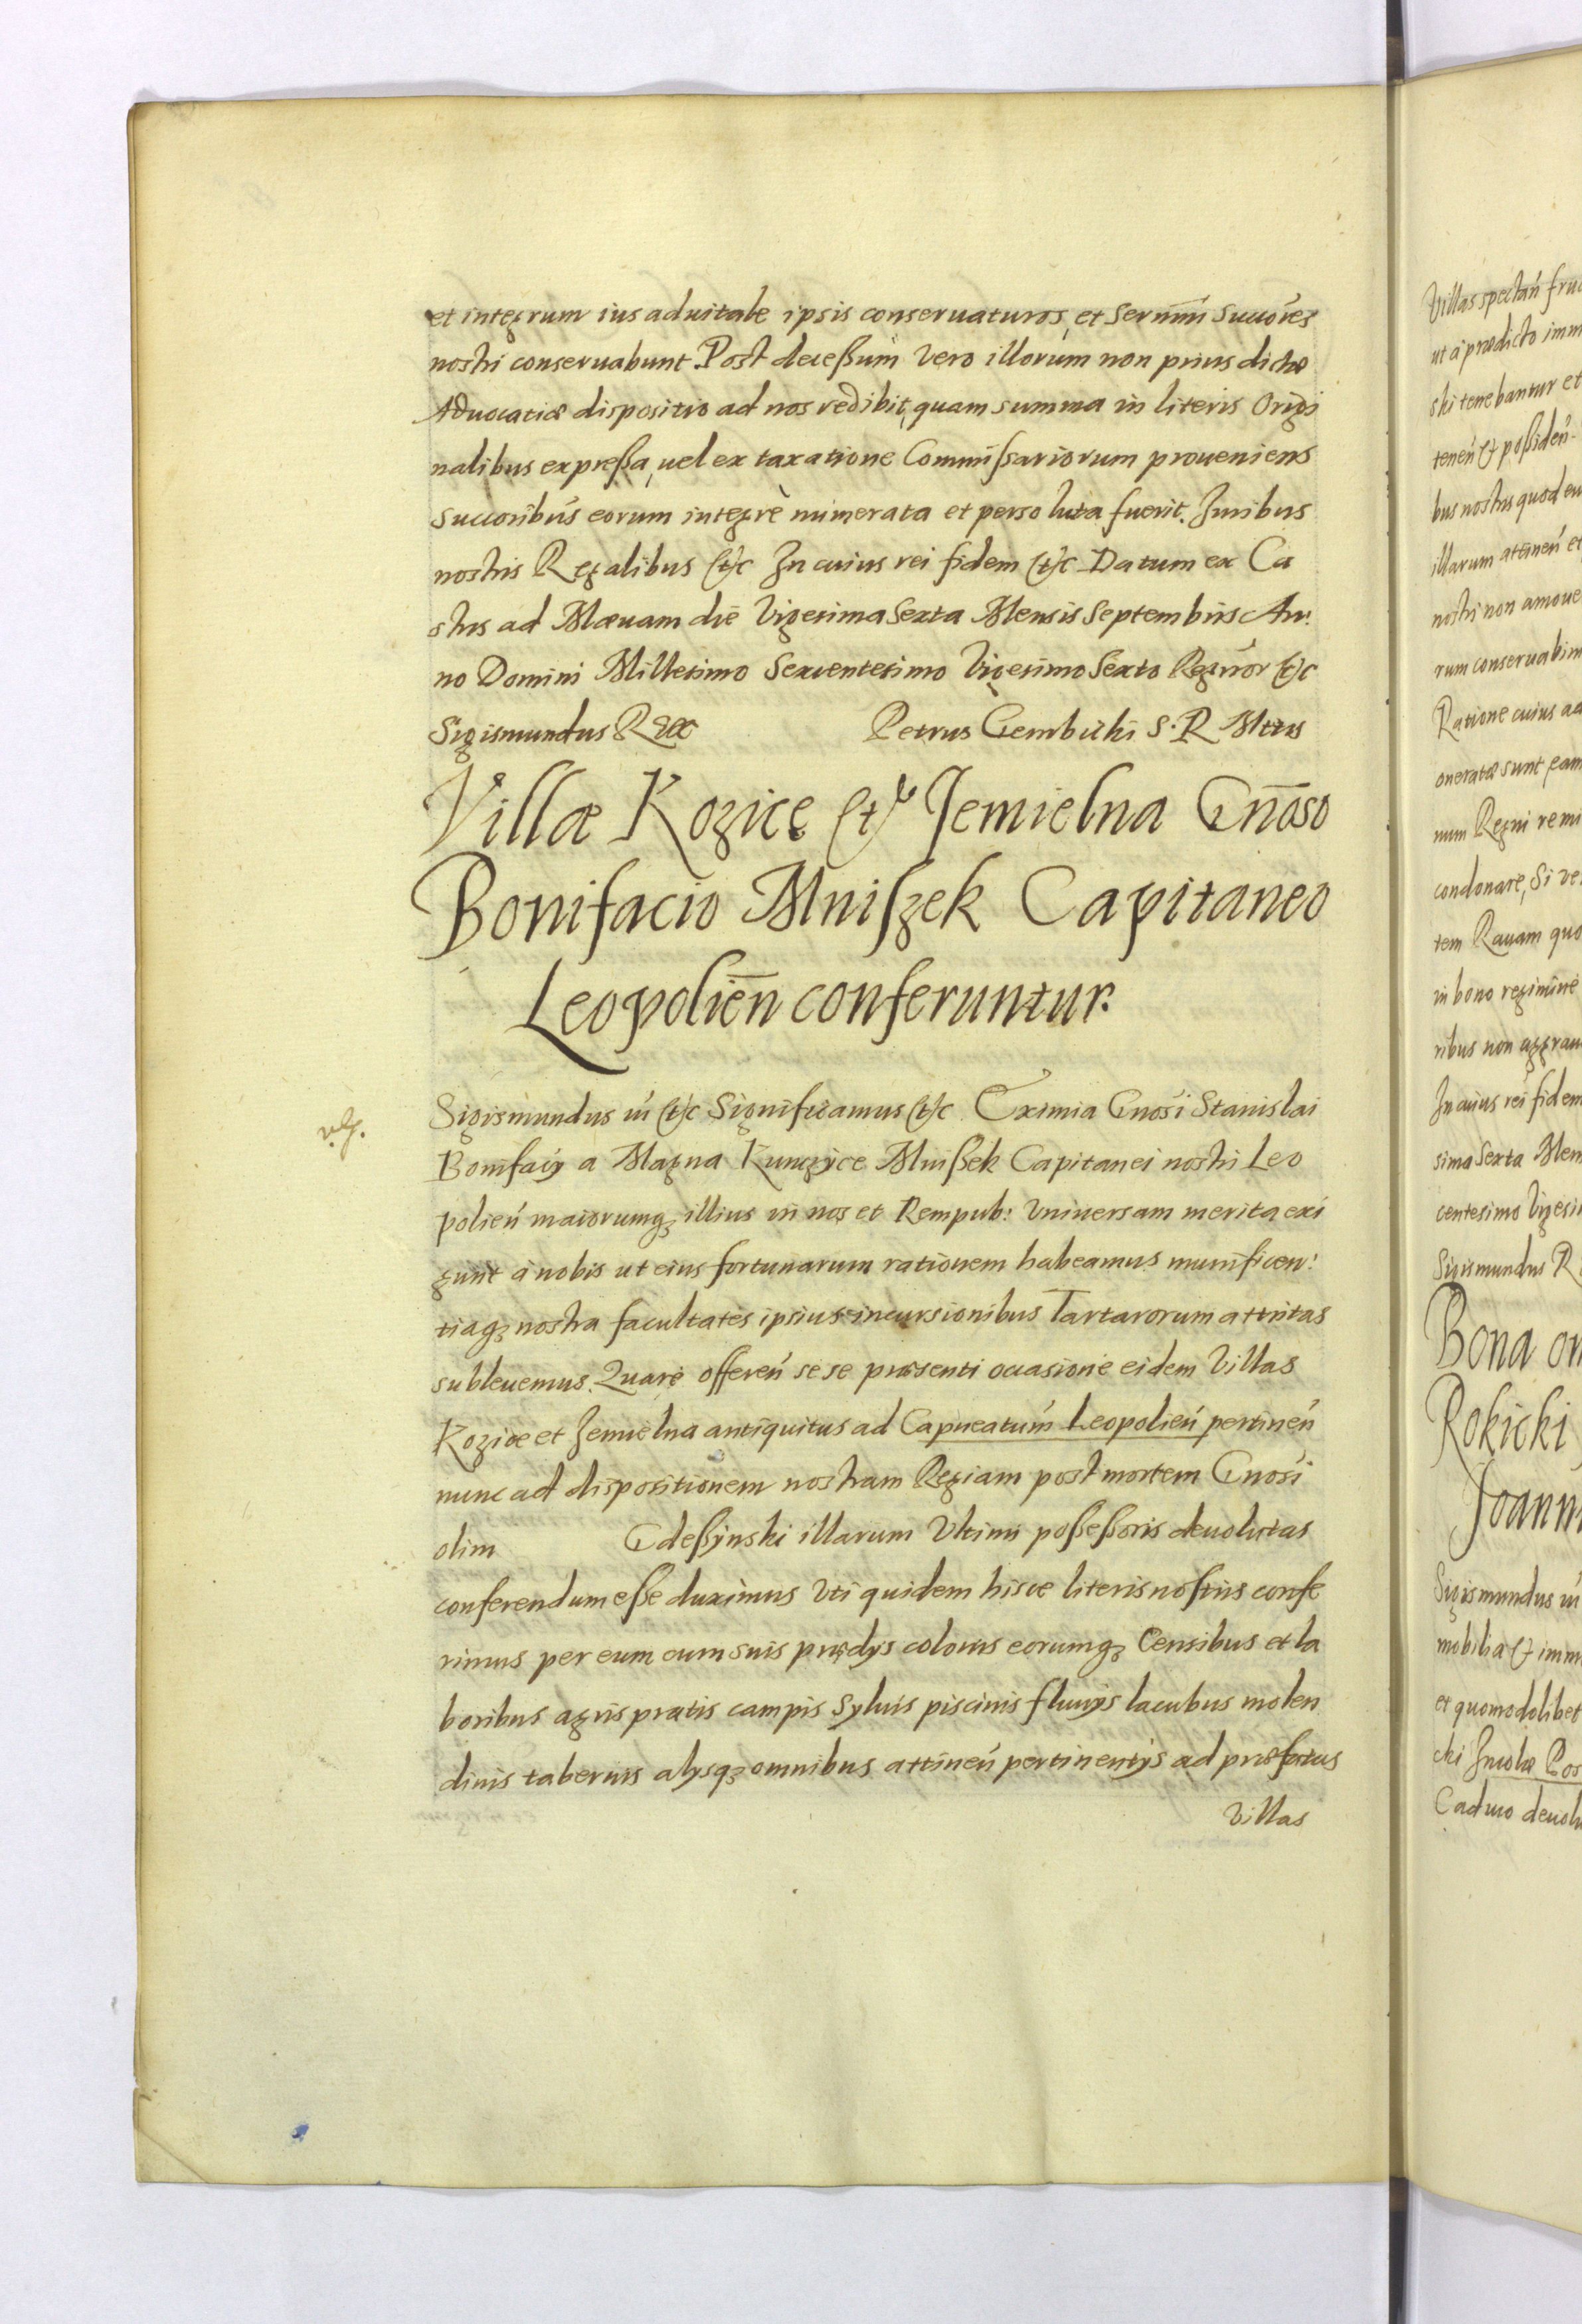 et integrum ius aduitale ipsis conseruaturos, et Sermi Succōres
nostri conseruabunt. Post decessum vero illorum non prius dictæ
Aduocatiæ dispositio ad nos redibit, quam summa in literis Origi
nalibus expreßa, uel ex taxatione Commißariorum proueniens
Succoribus eorum integrè numerata et persoluta fuerit. Juribus
nostris Regalibus etc In cuius rei fidem etc Datum ex Ca
stris ad Mævam die Vigesima Sexta Mensis Septembris An:
no Domini Millesimo Sexcentesimo Vigesimo Sexto Regnor etc
Sigismundus Rex Petrus Gembicki S. R. Mttis
Villæ Kozice et Jemielna Gnōso
Bonifacio Mniszek Capitaneo
Leopolień conferuntur.
Sigismundus iii etc Significamus etc Eximia Gnosi Stanislai
Bonifacij a Magna Kunczyce Mnißek Capitanei nostri Leo
polień maiorumq; illius in nos et Rempub: Vniuersam merita exi
gunt à nobis ut eius fortunarum rationem habeamus munificen:
tiaq; nostra facultates ipsius incursionibus Tartarorum attritas
subleuemus. Quare offereń sese præsenti occasione eidem Villas
Kozice et Jemielna antiquitus ad Capneatum Leopolień pertineń
nunc ad dispositionem nostram Regiam post mortem Gnosi
olim Gdeßynski illarum Vltimi poßeßoris deuolutas
conferendum eße duximus Vti quidem hisce literis nostris confe
rimus per eum cum suis prædys colonis eorumq; Censibus et la
boribus agris pratis campis Syluis piscinis fluuijs lacubus molen
dinis tabernis alysq; omnibus attineń pertinentijs ad præfatas
Villas
Villas spectań fruc
ut à prædicto imm
ski tenebantur et
teneń et poßideń
bus nostris quod eu
illarum attineń et
nostri non amoue
rum conseruabim
Ratione cuius ad
oneratæ sunt eam
num Regni remi
condonare, Si ve
tem Rauam quo
in bono regimine
ribus non aggrau
In cuius rei fidem
sima Sexta Men
centesimo Vigesi
Sigismundus R
Bona om
Rokicki
Joanni
Sigismundus iii
mobilia et imm
et quomodolibet
cki Incolæ Pos
Caduco deuolu